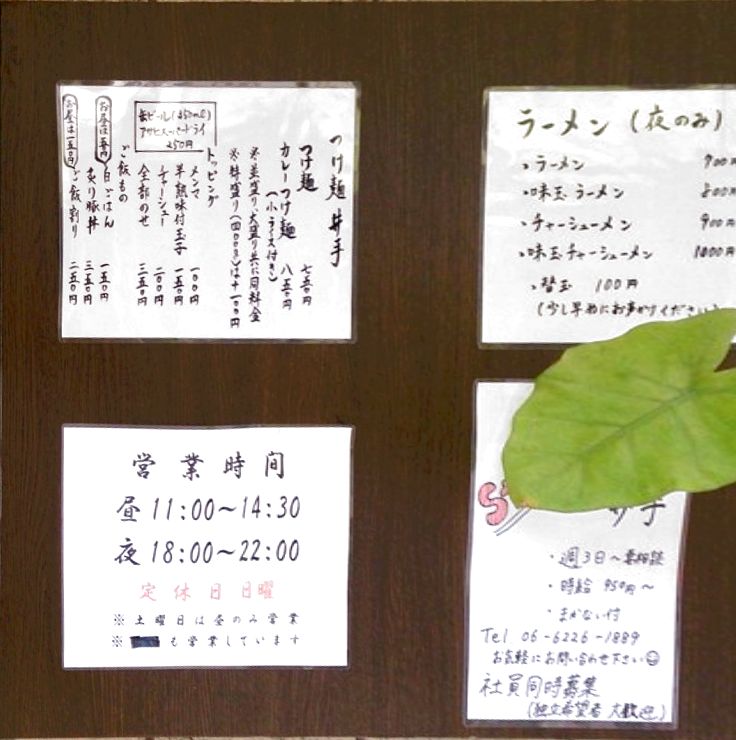 つけ麺 井手
つけ麺 七五〇円
カレーつけ麺 八五〇円
(小ライス付き)
※並盛り、大盛り共に同料金
※丼盛り(四〇〇g)は+一〇〇円
トッピング
メンマ 一〇〇円
半熟味付玉子 一五〇円
チャーシュー 二〇〇円
全部のせ 三五〇円
ご飯もの
お昼は 白ごはん 一五〇円
炙り豚丼 三五〇円
お昼は一五〇円 ご飯割り 二五〇円
缶ビール(350ml)
アサヒスーパードライ
250円
ラーメン(夜のみ)
・ラーメン 700円
・味玉ラーメン 800円
・チャーシューメン 900円
・味玉チャーシューメン 1000円
・替玉 100円
(少し早めにお声がけください)
営業時間
昼 11:00~14:30
夜 18:00~22:00
定休日 日曜
※土曜日は昼のみ営業
※も営業しています
・週3日~要相談
・時給 950円~
・まかない付
Tel 06-6226-1889
お気軽にお問い合わせ下さい
社員同時募集
(独立希望者 大歓迎)